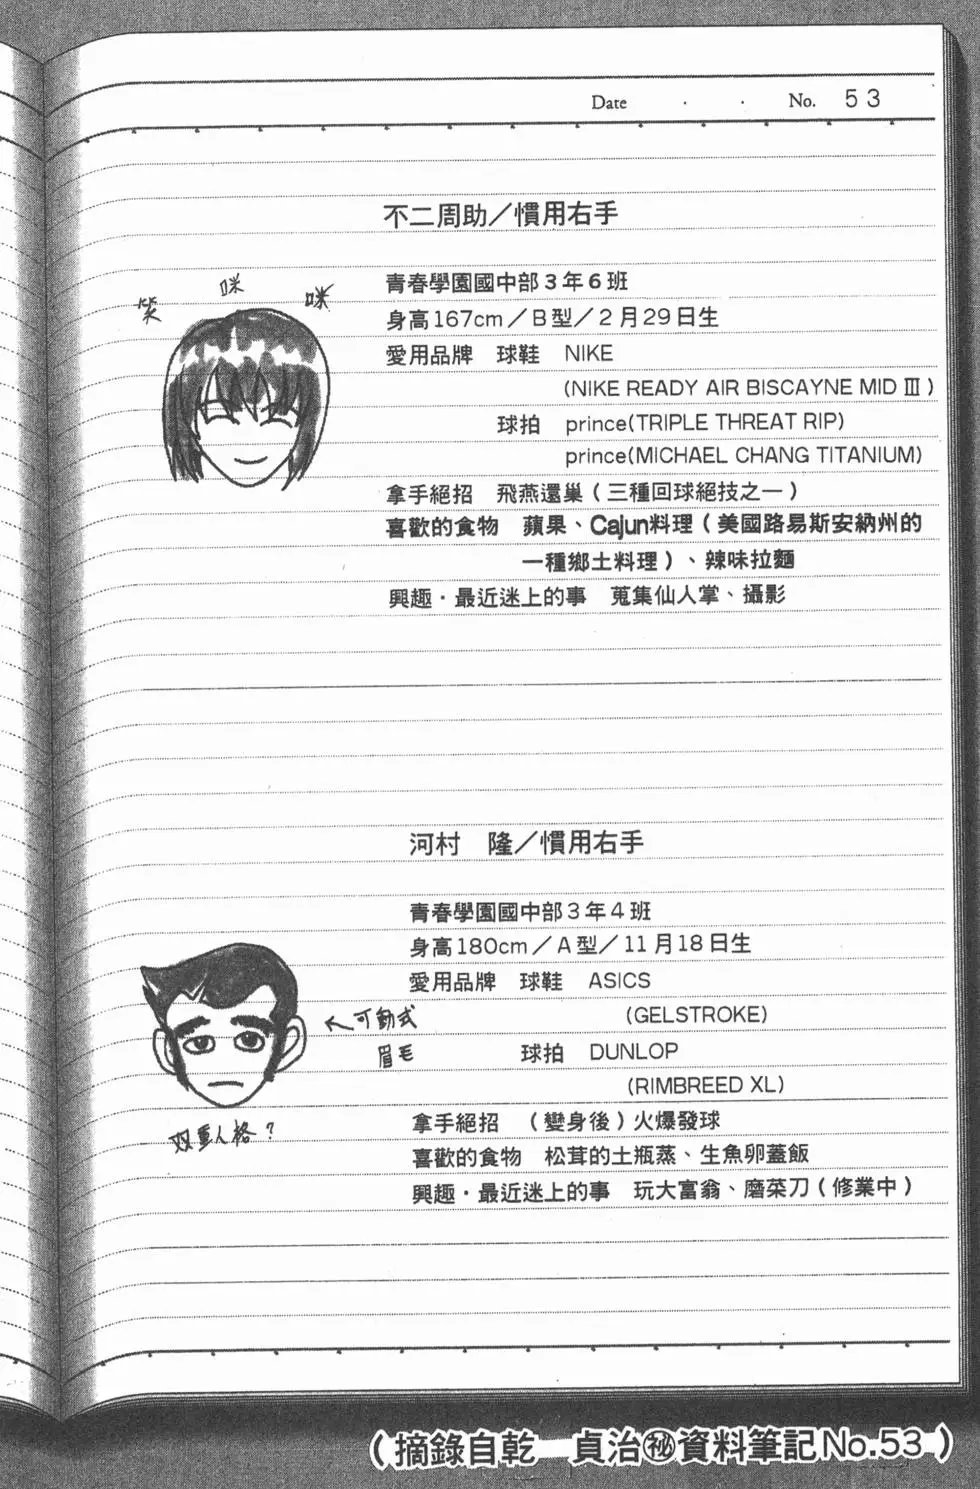 Date . . No. 53
不二周助／慣用右手
笑 咪 咪
青春學園國中部3年6班
身高167cm／B型／2月29日生
愛用品牌 球鞋 NIKE
(NIKE READY AIR BISCAYNE MID Ⅲ)
球拍 prince(TRIPLE THREAT RIP)
prince(MICHAEL CHANG TITANIUM)
拿手絕招 飛燕還巢（三種回球絕技之一）
喜歡的食物 蘋果、Cajun料理（美國路易斯安納州的
一種鄉土料理）、辣味拉麵
興趣・最近迷上的事 蒐集仙人掌、攝影
河村 隆／慣用右手
青春學園國中部3年4班
身高180cm／A型／11月18日生
愛用品牌 球鞋 ASICS
(GELSTROKE)
←可動式
眉毛
球拍 DUNLOP
(RIMBREED XL)
双重人格？
拿手絕招 （變身後）火爆發球
喜歡的食物 松茸的土瓶蒸、生魚卵蓋飯
興趣・最近迷上的事 玩大富翁、磨菜刀（修業中）
（摘錄自乾 貞治㊙資料筆記No.53）